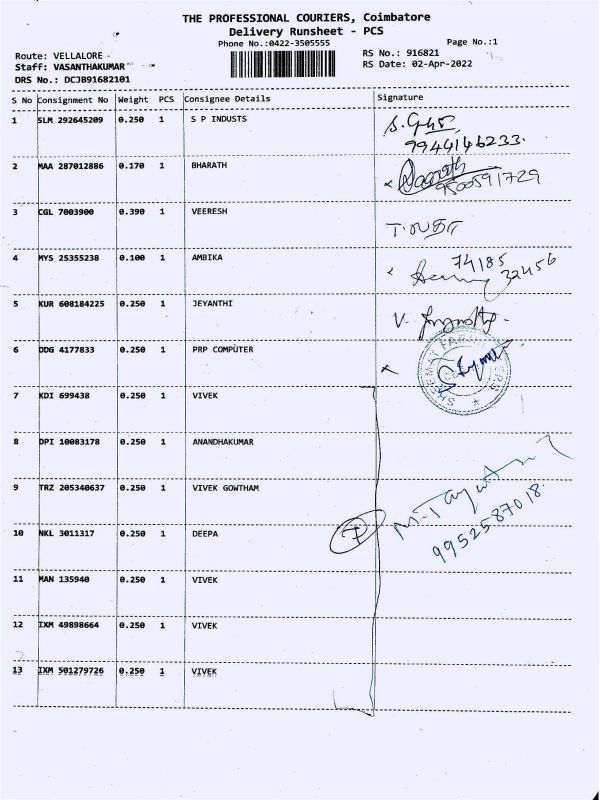 THE PROFESSIONAL COURIERS, Coimbatore
Delivery Runsheet - PCS
Phone No.:0422-3505555 Page No.:1
Route: VELLALORE RS No.: 916821
Staff: VASANTHAKUMAR RS Date: 02-Apr-2022
DRS No.: DCJB91682101
S No Consignment No Weight PCS Consignee Details Signature
1 SLM 292645209 0.250 1 S P INDUSTS
9944146233
2 MAA 287012886 0.170 1 BHARATH
9500591729
3 CGL 7003900 0.390 1 VEERESH
4 MYS 25355238 0.100 1 AMBIKA 74185 32456
5 KUR 608184225 0.250 1 JEYANTHI
6 DDG 4177833 0.250 1 PRP COMPUTER
7 KDI 699438 0.250 1 VIVEK
8 DPI 10083178 0.250 1 ANANDHAKUMAR
9 TRZ 205340637 0.250 1 VIVEK GOWTHAM
9952587018
10 NKL 3011317 0.250 1 DEEPA 7
11 MAN 135940 0.250 1 VIVEK
12 IXM 49898664 0.250 1 VIVEK
13 IXM 501279726 0.250 1 VIVEK